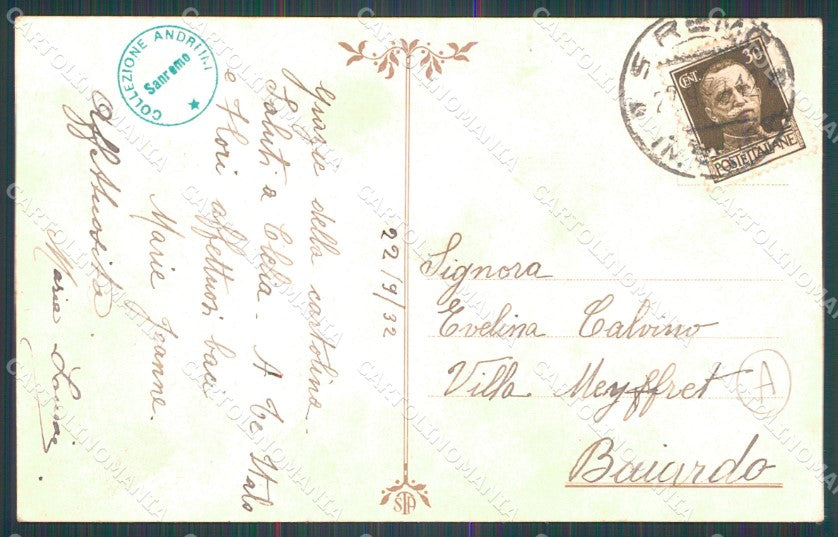 COLLEZIONE ANDREINI
Sanremo
Grazie della cartolina.
Saluti a Clelia. A te Italo
e Flori affettuosi baci
Marie Jeanne.
Aff Ahosità
Maria Louisa.
22/9/32
CENT. 30
POSTE ITALIANE
Signora
Evelina Calvino
Villa Meyffret
A
Baiardo
STA
CARTOLINOMANIA